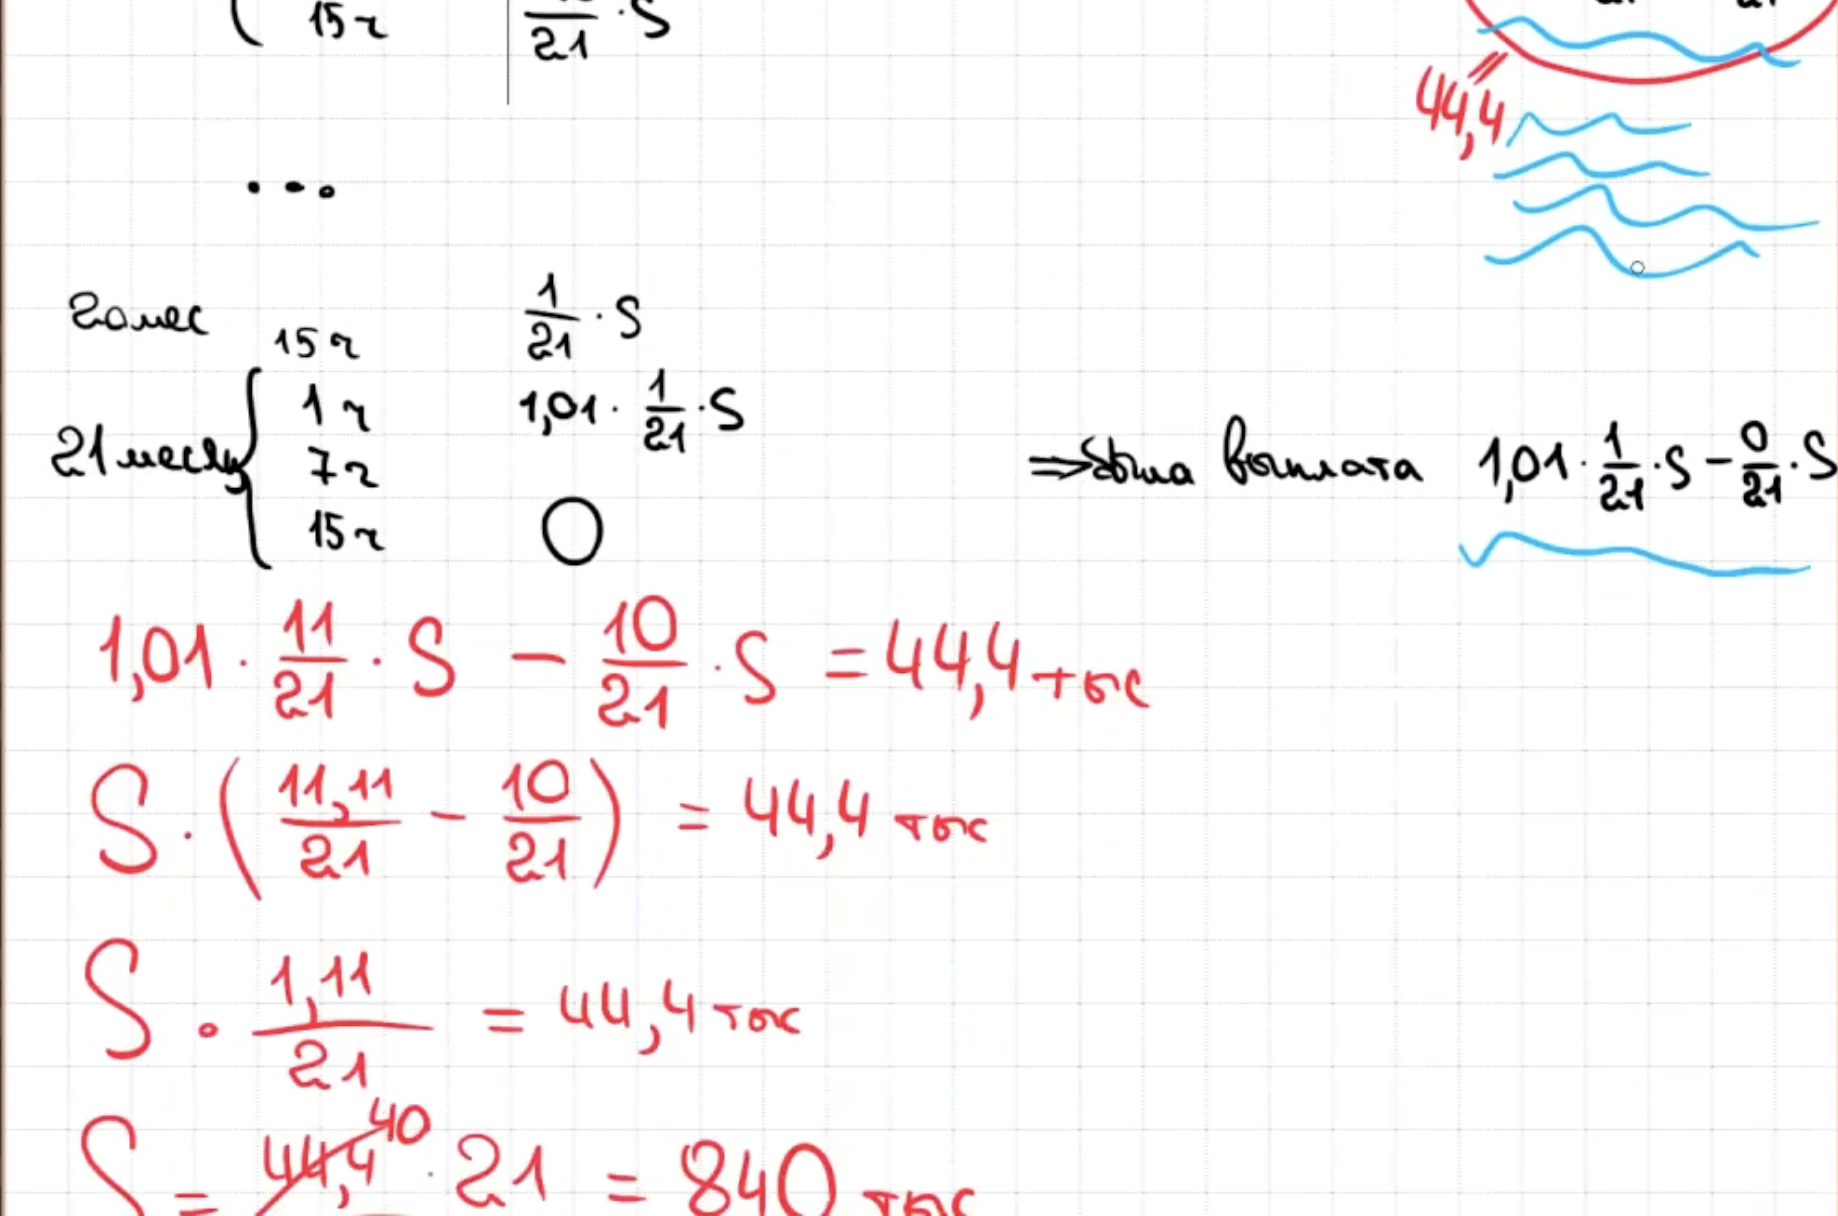 15ч /21 · S
44,4
...
20 мес 15ч 1/21 · S
21 месяц 1ч 1,01 · 1/21 · S
7ч
15ч 0
⇒ была выплата 1,01 · 1/21 · S − 0/21 · S
1,01 · 11/21 · S − 10/21 · S = 44,4 тыс
S · (11,11/21 − 10/21) = 44,4 тыс
S · 1,11/21 = 44,4 тыс
S = 44,4 40 · 21 = 840 тыс